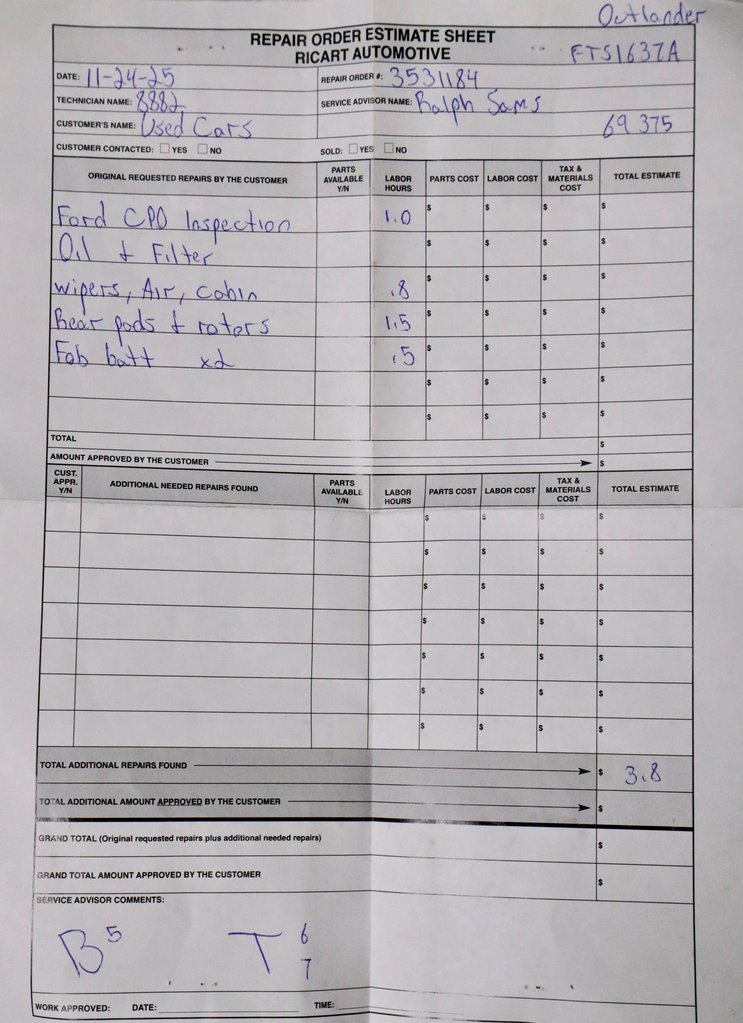 Outlander
REPAIR ORDER ESTIMATE SHEET
RICART AUTOMOTIVE
FTS1637A
DATE: 11-24-25
REPAIR ORDER #: 3531184
TECHNICIAN NAME: 8882
SERVICE ADVISOR NAME: Ralph Sams
CUSTOMER'S NAME: Used Cars
69 375
CUSTOMER CONTACTED: YES NO
SOLD: YES NO
ORIGINAL REQUESTED REPAIRS BY THE CUSTOMER PARTS AVAILABLE Y/N LABOR HOURS PARTS COST LABOR COST TAX & MATERIALS COST TOTAL ESTIMATE
Ford CPO Inspection 1.0 $ $ $ $
Oil & Filter $ $ $ $
wipers, Air, cabin .8 $ $ $ $
Rear pads & rotors 1.5 $ $ $ $
Fob batt x2 .5 $ $ $ $
$ $ $ $
$ $ $ $
TOTAL $
AMOUNT APPROVED BY THE CUSTOMER $
CUST. APPR. Y/N ADDITIONAL NEEDED REPAIRS FOUND PARTS AVAILABLE Y/N LABOR HOURS PARTS COST LABOR COST TAX & MATERIALS COST TOTAL ESTIMATE
$ $ $ $
$ $ $ $
$ $ $ $
$ $ $ $
$ $ $ $
$ $ $ $
$ $ $ $
TOTAL ADDITIONAL REPAIRS FOUND $ 3.8
TOTAL ADDITIONAL AMOUNT APPROVED BY THE CUSTOMER $
GRAND TOTAL (Original requested repairs plus additional needed repairs) $
GRAND TOTAL AMOUNT APPROVED BY THE CUSTOMER $
SERVICE ADVISOR COMMENTS:
B 5 T 6
7
WORK APPROVED: DATE: TIME: